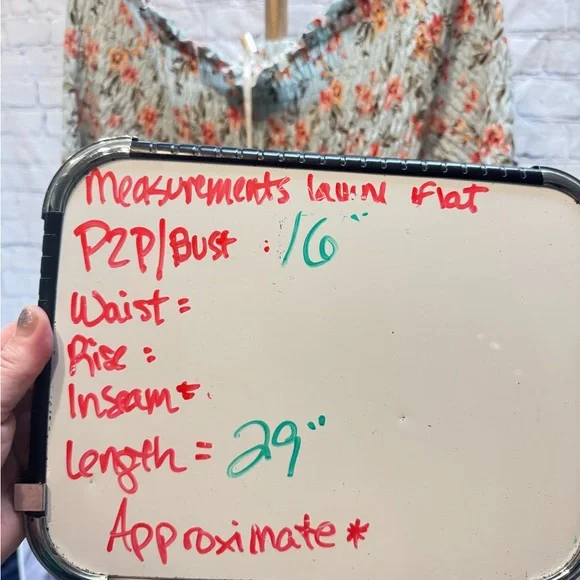 Measurements laying Flat
P2P/Bust : 16"
Waist =
Rise :
Inseam =
Length = 29"
Approximate *